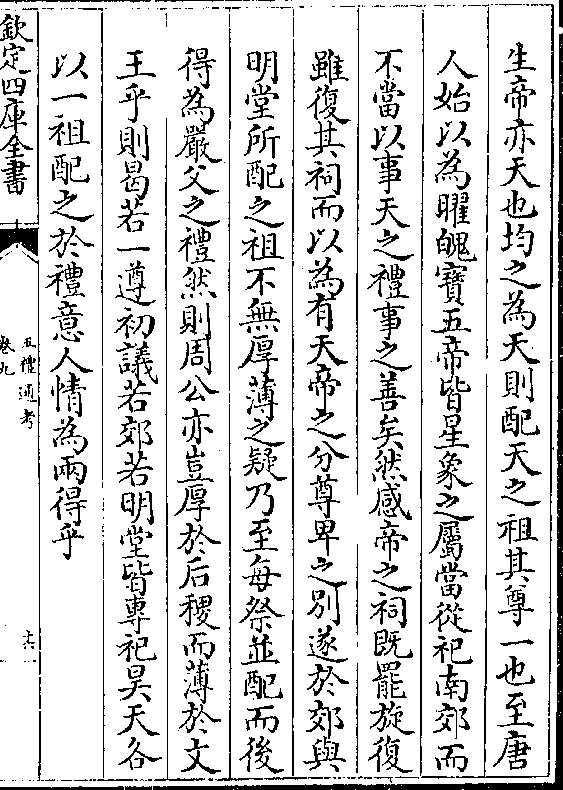 生帝亦天也均之為天則配天之祖其尊一也至唐
人始以為曜魄寳五帝皆星象之屬當從祀南郊而
不當以事天之禮事之善矣然感帝之祠既罷旋復
雖復其祠而以為有天帝之分尊卑之別遂於郊與
明堂所配之祖不無厚薄之疑乃至每祭並配而後
得為嚴父之禮然則周公亦豈厚於后稷而薄於文
王乎則曷若一遵初議若郊若明堂皆專祀昊天各
以一祖配之於禮意人情為兩得乎
欽定四庫全書
五禮通考
卷九